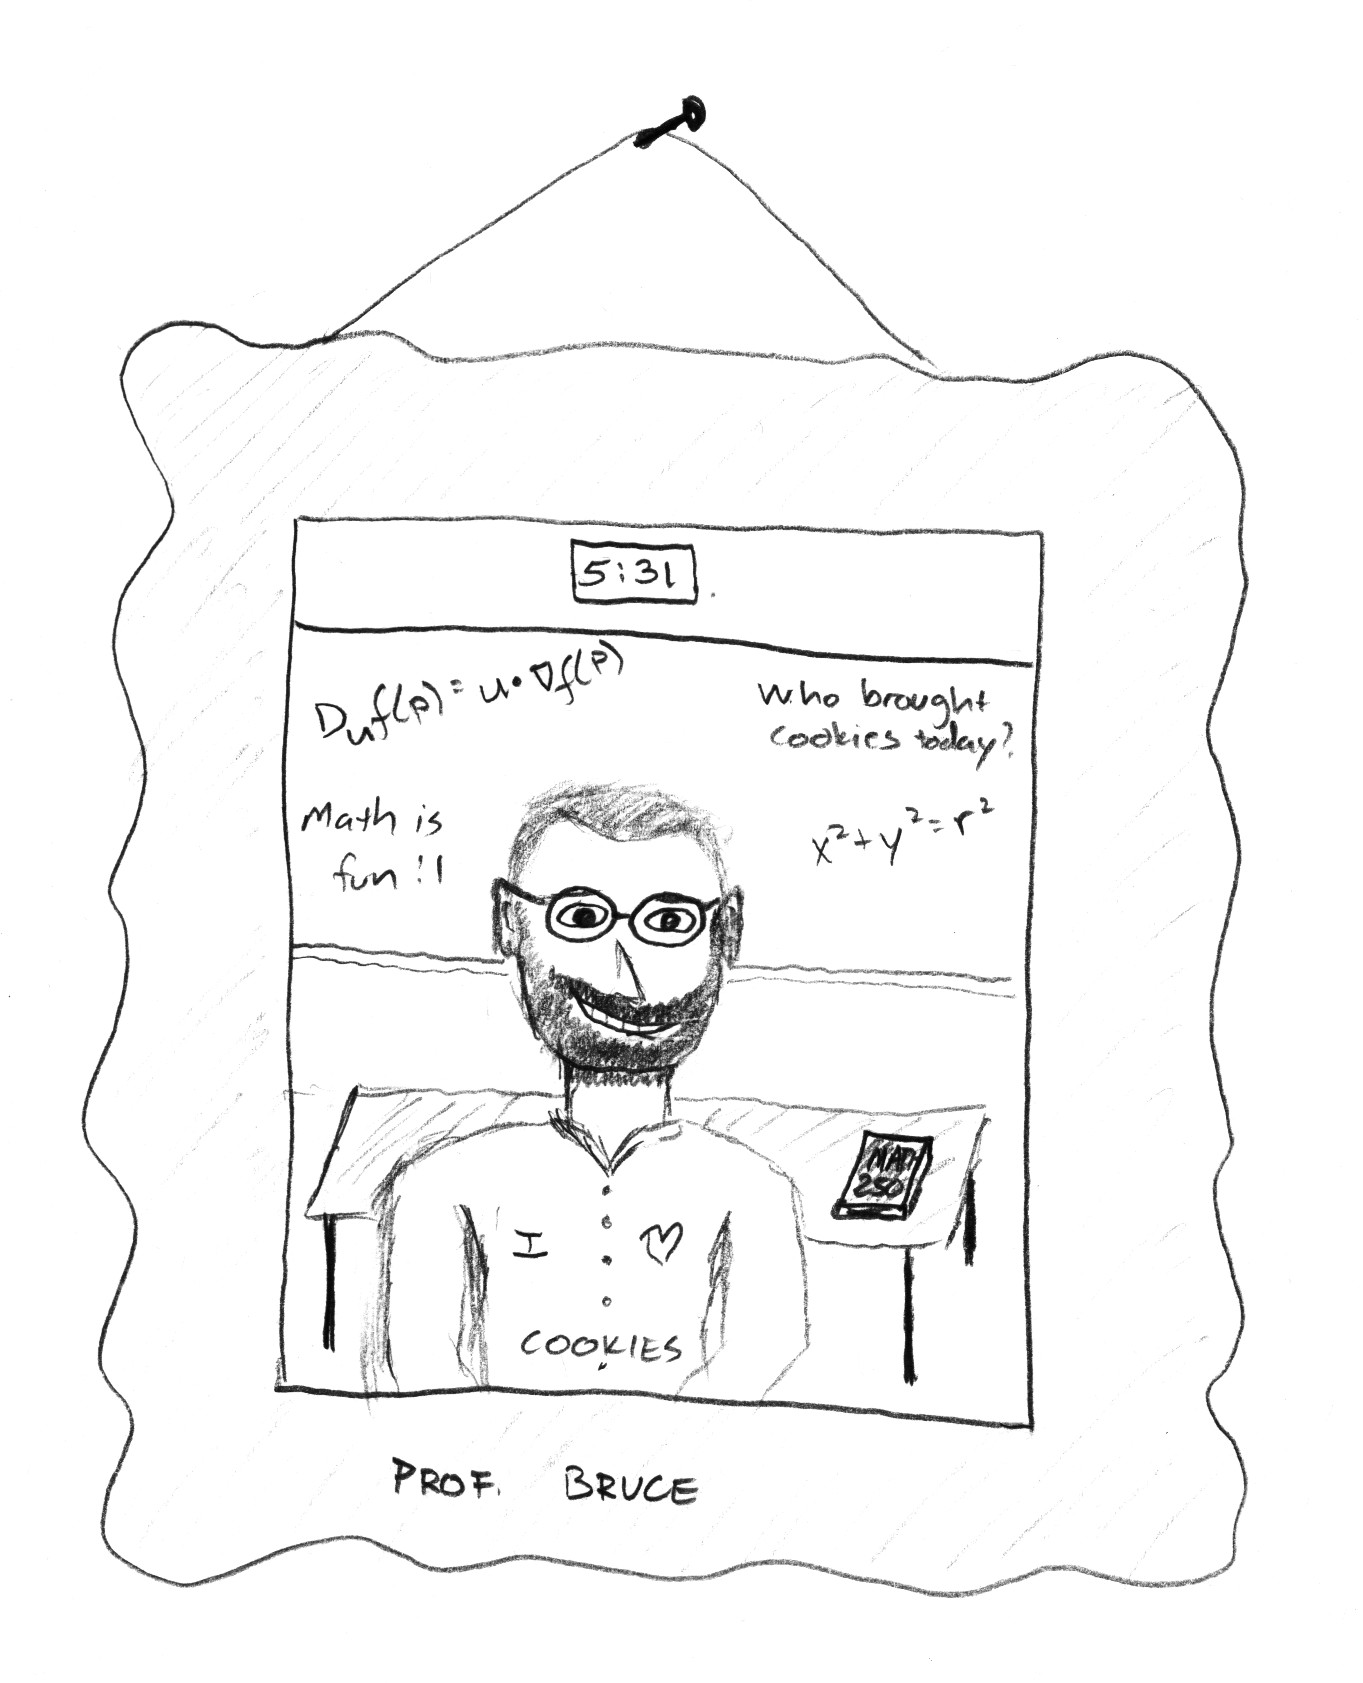 5:31
Duf(p) = u • ∇f(p)
Who brought
cookies today?
Math is
fun !!
x²+y²=r²
MATH
250
I ♡
COOKIES
PROF. BRUCE